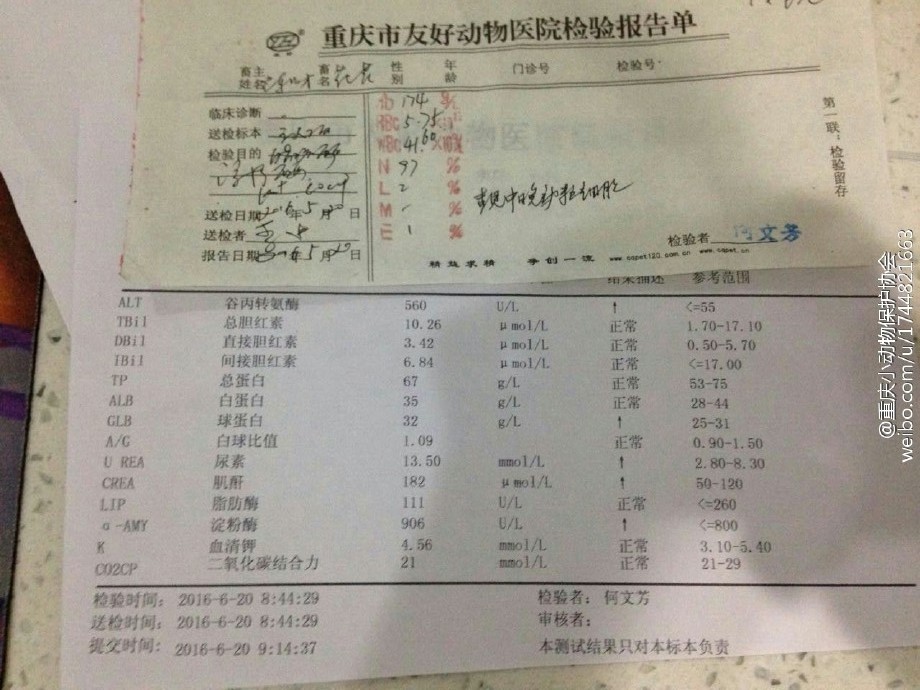 重庆市友好动物医院检验报告单
畜主姓名 畜名 性别 年龄 门诊号 检验号
第一联:检验留存
临床诊断
送检标本
检验目的
送检日期 2016年5月20日
送检者
报告日期 2016年5月20日
Hb 174 g/L
RBC 5.75
WBC 41.60
N 97 %
L 2 %
M - %
E 1 %
检验者 何文芳
精益求精 争创一流 www.cqpet120.com.cn www.cqpet.cn
结果描述 参考范围
ALT 谷丙转氨酶 560 U/L ↑ <=55
TBil 总胆红素 10.26 μmol/L 正常 1.70-17.10
DBil 直接胆红素 3.42 μmol/L 正常 0.50-5.70
IBil 间接胆红素 6.84 μmol/L 正常 <=17.00
TP 总蛋白 67 g/L 正常 53-75
ALB 白蛋白 35 g/L 正常 28-44
GLB 球蛋白 32 g/L ↑ 25-31
A/G 白球比值 1.09 正常 0.90-1.50
U REA 尿素 13.50 mmol/L ↑ 2.80-8.30
CREA 肌酐 182 μmol/L ↑ 50-120
LIP 脂肪酶 111 U/L 正常 <=260
α-AMY 淀粉酶 906 U/L ↑ <=800
K 血清钾 4.56 mmol/L 正常 3.10-5.40
CO2CP 二氧化碳结合力 21 mmol/L 正常 21-29
检验时间: 2016-6-20 8:44:29 检验者: 何文芳
送检时间: 2016-6-20 8:44:29 审核者:
提交时间: 2016-6-20 9:14:37 本测试结果只对本标本负责
@重庆小动物保护协会
weibo.com/u/1744821663